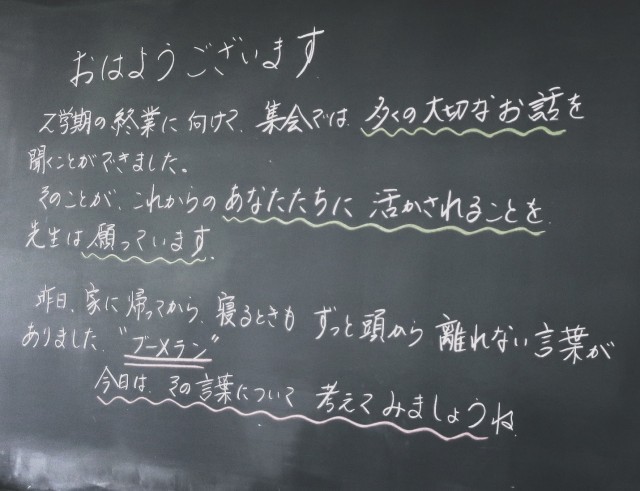 おはようございます
2学期の終業に向けて、集会では、多くの大切なお話を
聞くことができました。
そのことが、これからのあなたたちに活かされることを
先生は願っています。
昨日、家に帰ってから、寝るときもずっと頭から離れない言葉が
ありました。“ブーメラン”
今日は、その言葉について考えてみましょうね